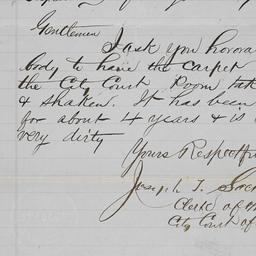 Gentlemen
I ask you honora
body to have the carpet
the City Court Room tak
& shaken. It has been
for about 4 years & is
very dirty
Yours Respectfu
Joseph T.
Clerk of
City Court of